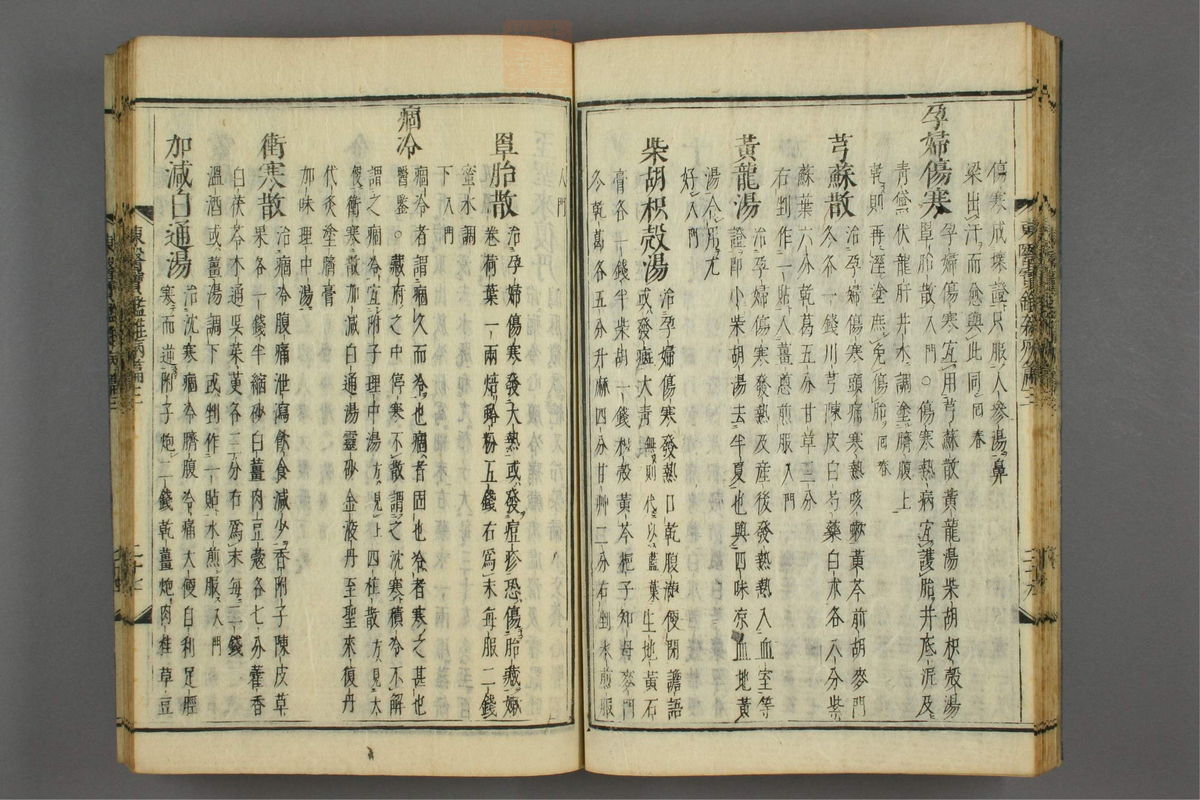 傷寒成壞證只服人參湯鼻
梁出汗而愈與此同回春
孕婦傷寒孕婦傷寒宜用芎蘇散黃龍湯柴胡枳殼湯
罩胎散入門○傷寒熱病宜護胎井底泥及
青黛伏龍肝井水調塗臍腹上
乾則再溼塗庶免傷胎回春
芎蘇散治孕婦傷寒頭痛寒熱咳嗽黃芩前胡麥門
冬各一錢川芎陳皮白芍藥白朮各八分柴
蘇葉六分乾葛五分甘草三分
右剉作一貼入薑葱煎服入門
黃龍湯治孕婦傷寒發熱及産後發熱熱入血室等
證即小柴胡湯去半夏也與四味凉血地黃
湯合用尤
好入門
柴胡枳殼湯治孕婦傷寒發熱口乾腹滿便閉譫語
或發癍大青無則代以藍葉生地黃石
膏各一錢半柴胡一錢枳殼黃芩梔子知母麥門
冬乾葛各五分升麻四分甘艸二分右剉水煎服
入門
罩胎散治孕婦傷寒發大熱或發痘疹恐傷胎藏嫩
卷荷葉一兩焙蚌粉五錢右爲末每服二錢
蜜水調
下入門
痼冷痼冷者謂痼久而冷也痼者固也冷者寒之甚也
醫鑒○藏府之中停寒不散謂之沈寒積冷不解
謂之痼冷宜附子理中湯方見上四柱散方見大
便衛寒散加減白通湯靈砂金液丹至聖來復丹
代灸塗臍膏
加味理中湯
衛寒散治痼冷腹痛泄瀉飮食減少香附子陳皮草
果各一錢半縮砂白薑肉豆蔲各七分藿香
白茯苓木通吳茱萸各三分右爲末每二錢
溫酒或薑湯調下或剉作一貼水煎服入門
加減白通湯治沈寒痼冷臍腹冷痛大便自利足脛
寒而逆附子炮二錢乾薑炮肉桂草豆